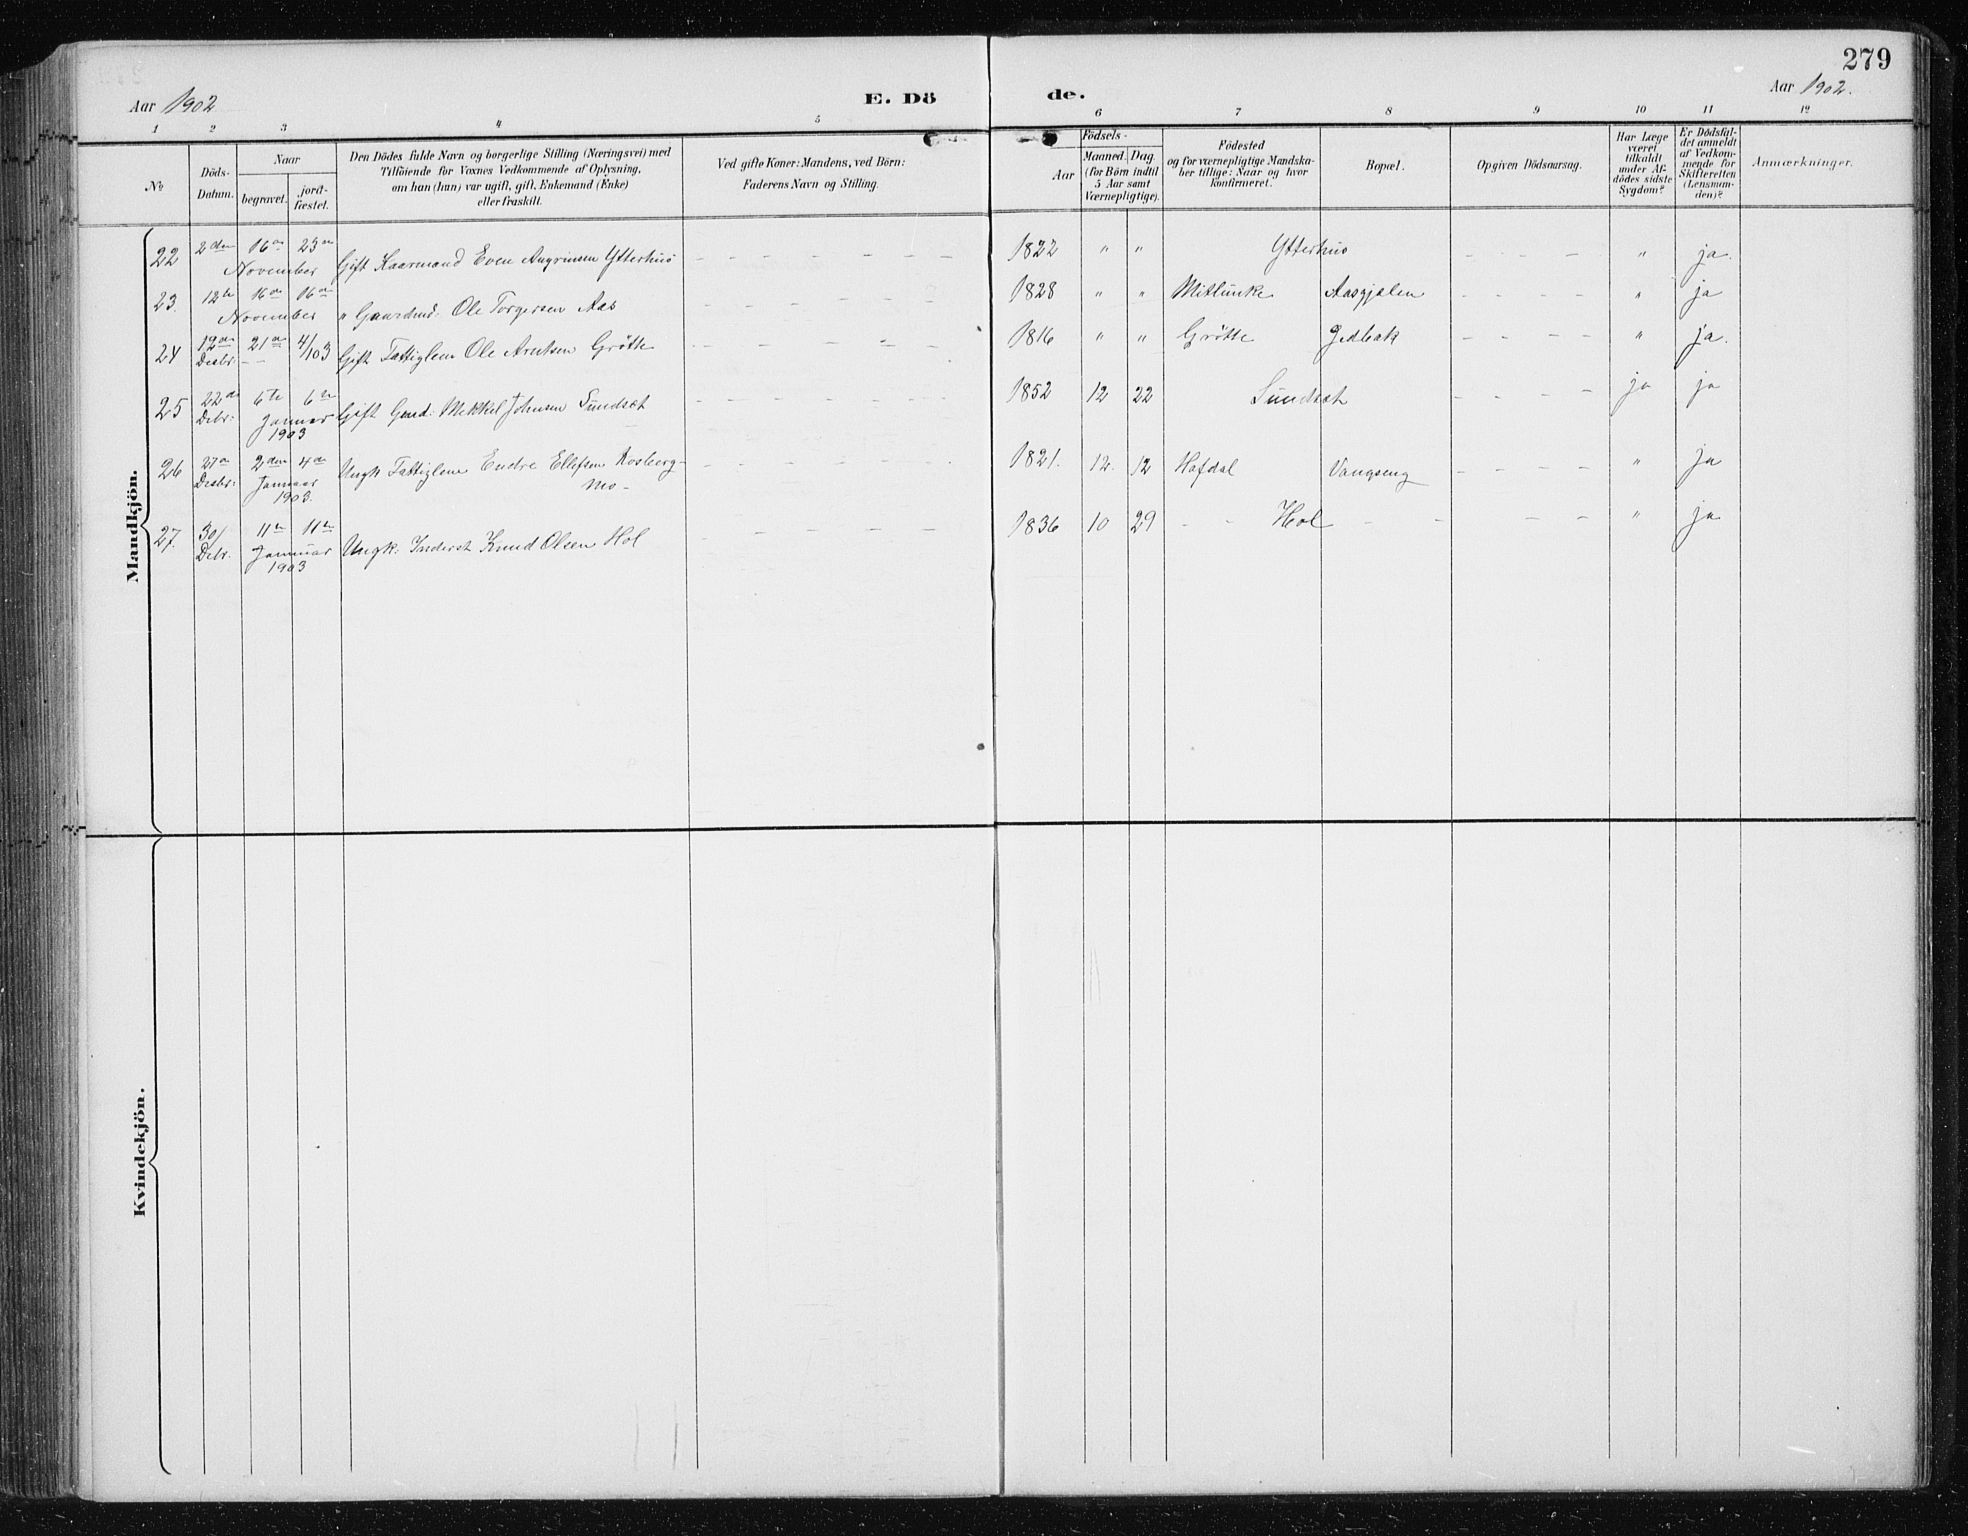 279
Aar 1902 E. Dö de. Aar 1902.
1 2 3 4 5 6 7 8 9 10 11 12
No
Döds-Datum.
Naar
begravet.
jordfæstet.
Den Dödes fulde Navn og borgerlige Stilling (Næringsvei) med
Tilföiende for Voxnes Vedkommende af Oplysning,
om han (hun) var ugift, gift, Enkemand (Enke)
eller fraskilt.
Ved gifte Koner: Mandens, ved Börn:
Faderens Navn og Stilling.
Födsels-
Aar
Maaned. Dag
(for Börn indtil
5 Aar samt
Værnepligtige).
Födested
og for værnepligtige Mandska-
ber tillige: Naar og hvor
konfirmeret.
Bopæl.
Opgiven Dödsaarsag.
Har Læge
været
tilkaldt
under Af-
dödes sidste
Sygdom?
Er Dödsfal-
det anmeldt
af Vedkom-
mende for
Skifteretten
(Lensman-
den)?
Anmærkninger.
Mandkjön.
22 2den 16de 23de November Gift Kaarmand Even Ytterhus 1822 " " Ytterhus " ja.
23. 12te 16de 16de November " Gaardmd. Ole Torgersen Aas 1828 " " Mitlunke Aasgjelen " ja
24 19de Desbr. 21de 4/103 Gift Fattiglem Ole Arntsen Grötte 1816 " " Grötte " ja.
25 22de Debr. 6te 6te Januar 1903 Gift Gmd. Mikkel Johnsen Sundset 1852 12 22 Sundset ja ja
26 27de Desbr. 2den 4de Januar 1903. Ungk. Fattiglem Endre Ellefsen Kosberg-
mo 1821. 12. 12 Hafdal Vangseng " ja
27. 30/ Debr. 11te 11te Januar 1903 Ungk. Inderst Knud Olsen Hol 1836 10 29 Hol " ja
Kvindekjön.